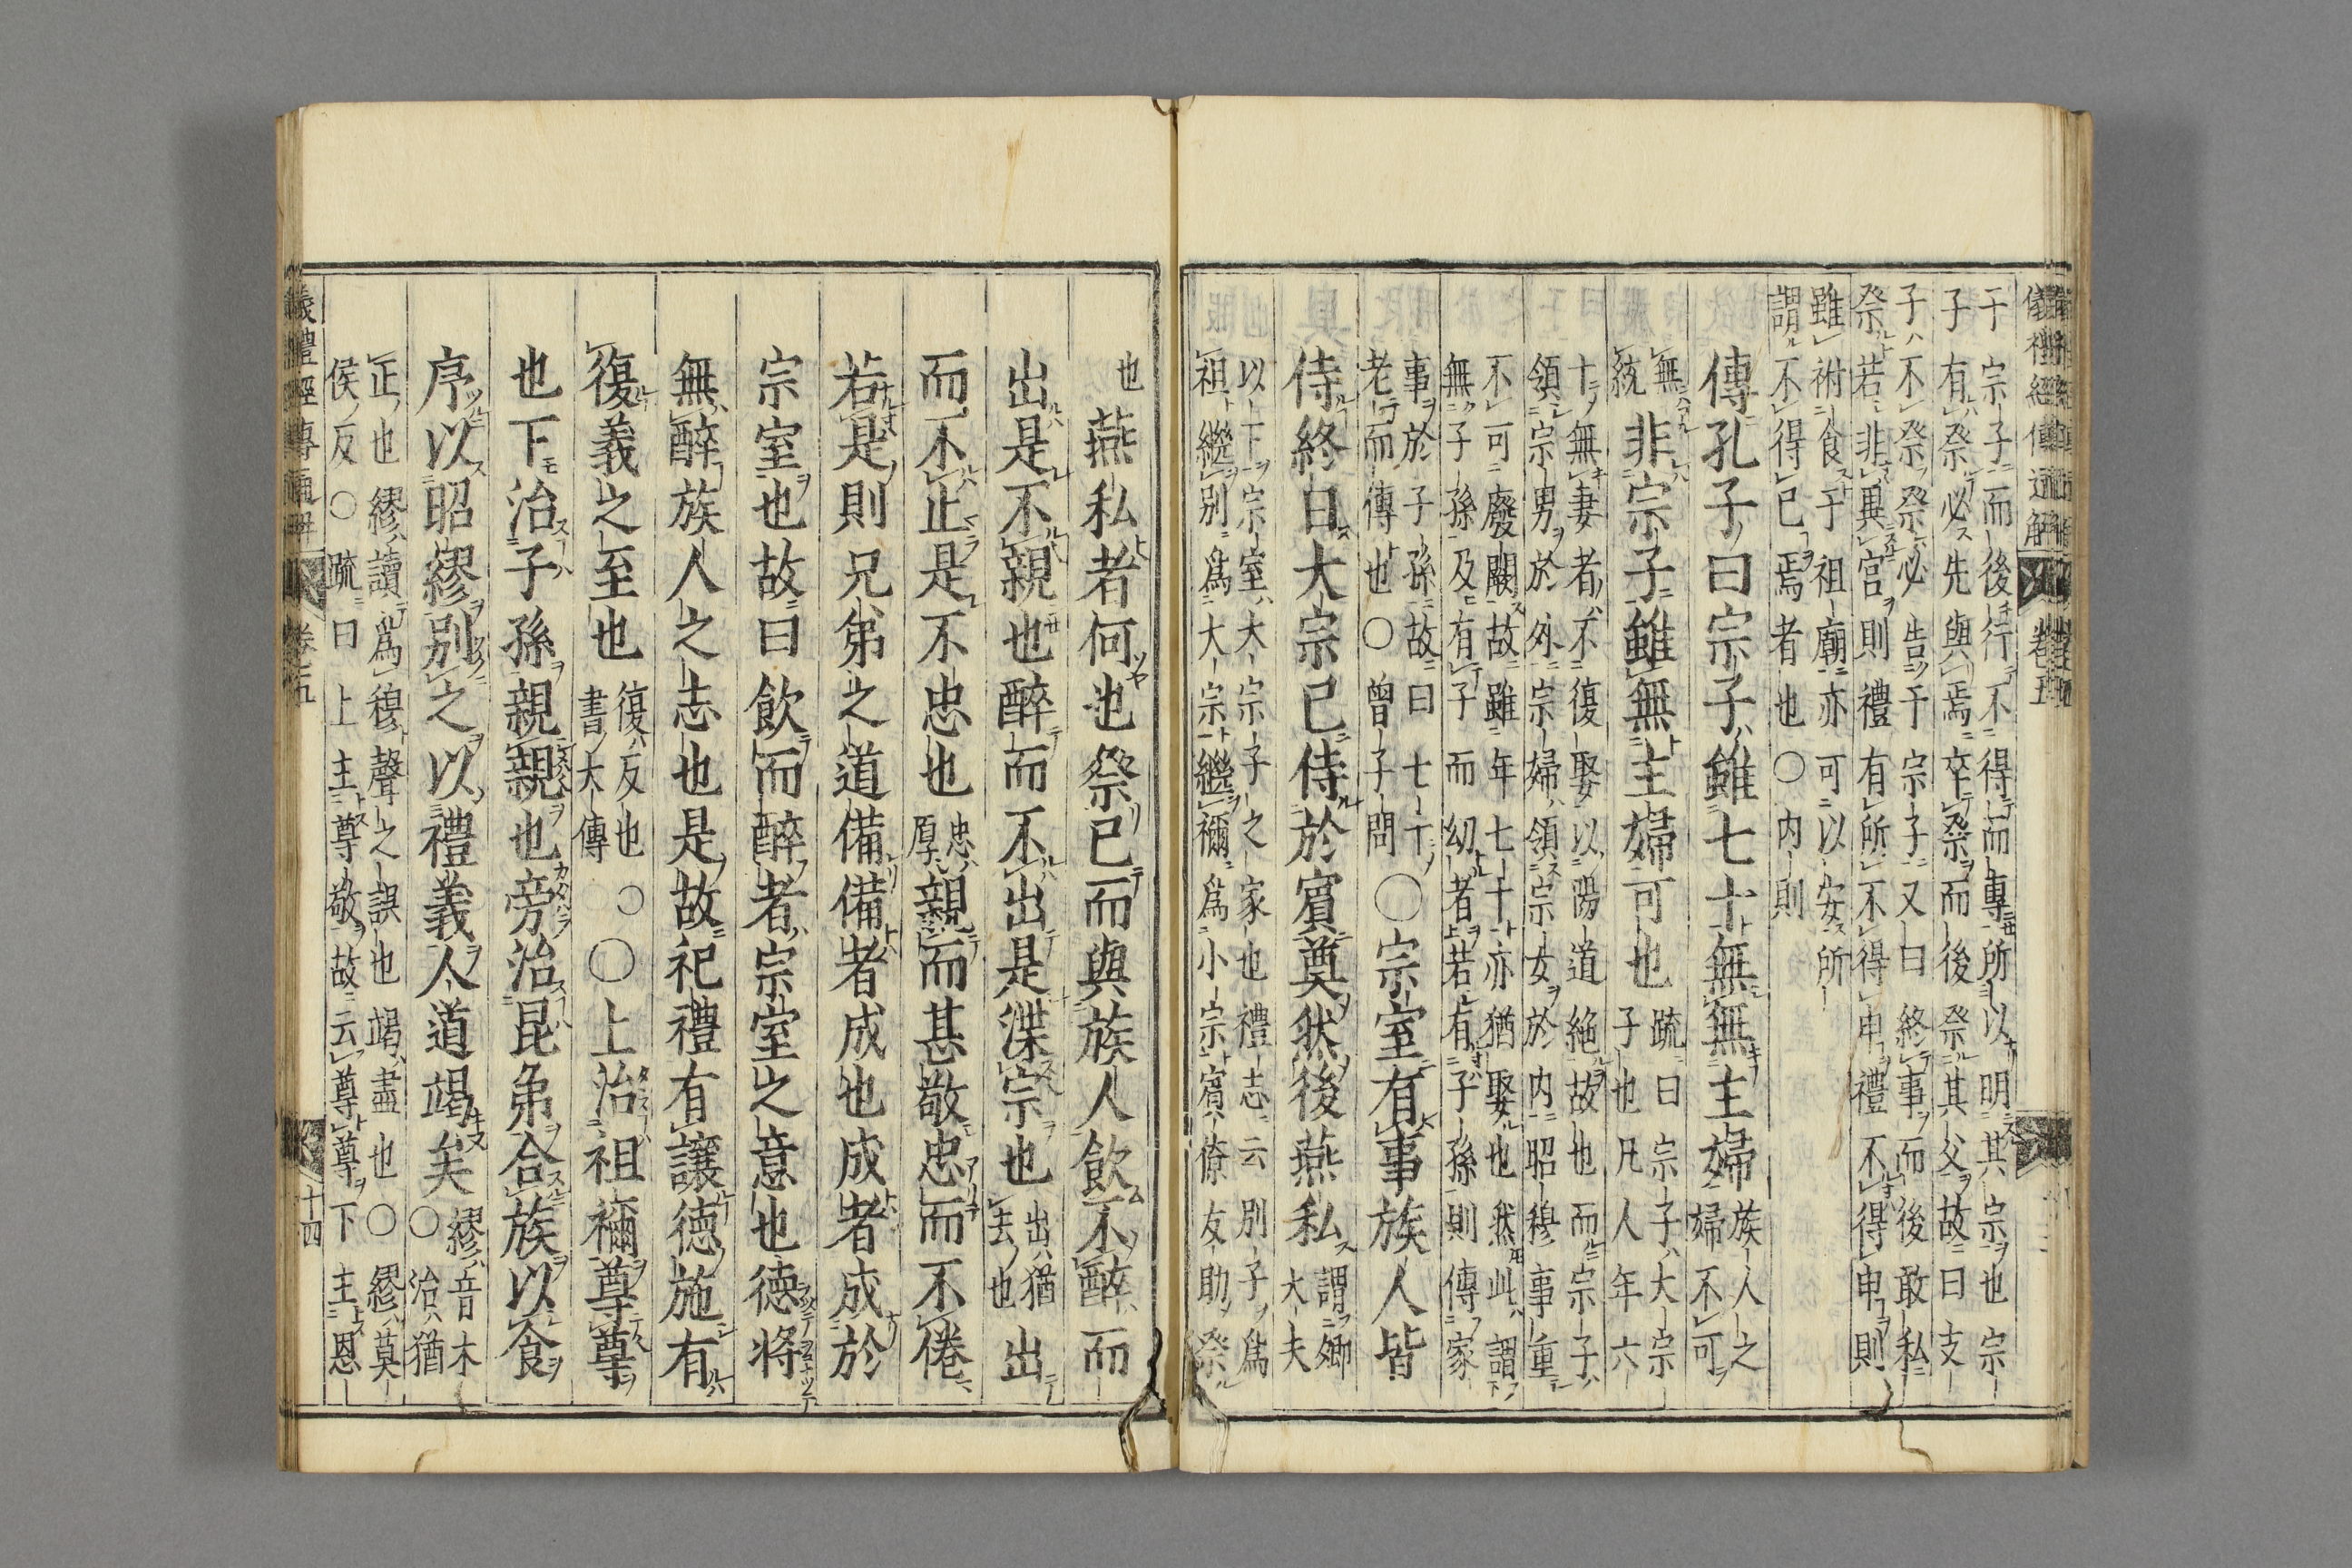 儀禮經傳通解 卷五
干宗子而後行不得而專所以明其宗也宗
子有祭必先與焉卒祭而後祭其父故曰支
子不祭祭必告于宗子又曰終事而後敢私
祭若非異宮則禮有所不得申禮不得申則
雖祔食于祖廟亦可以安所
謂不得已焉者也〇内則
傳孔子曰宗子雖七十無無主婦
族人之
婦不可
無
統
非宗子雖無主婦可也
疏曰宗子大宗
子也凡人年六
十無妻者不復娶以陽道絶故也而宗子
領宗男於外宗婦領宗女於内昭穆事重
不可廢闕故雖年七十亦猶娶也然此謂
無子孫及有子而幼者若有子孫則傳家
事於子孫故曰七十
老而傳也〇曾子問
〇宗室有事族人皆
侍終日大宗已侍於賓奠然後燕私
謂卿
大夫
以下宗室大宗子之家也禮志云別子爲
祖繼別爲大宗繼禰爲小宗賓僚友助祭
也
燕私者何也祭已而與族人飲不醉而
出是不親也醉而不出是渫宗也
出猶
去也
出
而不止是不忠也
忠
厚
親而甚敬忠而不倦
若是則兄弟之道備備者成也成者成於
宗室也故曰飲而醉者宗室之意也德將
無醉族人之志也是故祀禮有讓德施有
復義之至也
復反也
書大傳
〇〇上治祖禰尊尊
也下治子孫親親也旁治昆弟合族以食
序以昭繆別之以禮義人道竭矣
繆音木
〇治猶
正也繆讀爲穆聲之誤也竭盡也〇繆莫
侯反〇疏曰上主尊敬故云尊尊下主恩
儀禮經傳通解 卷五 十四